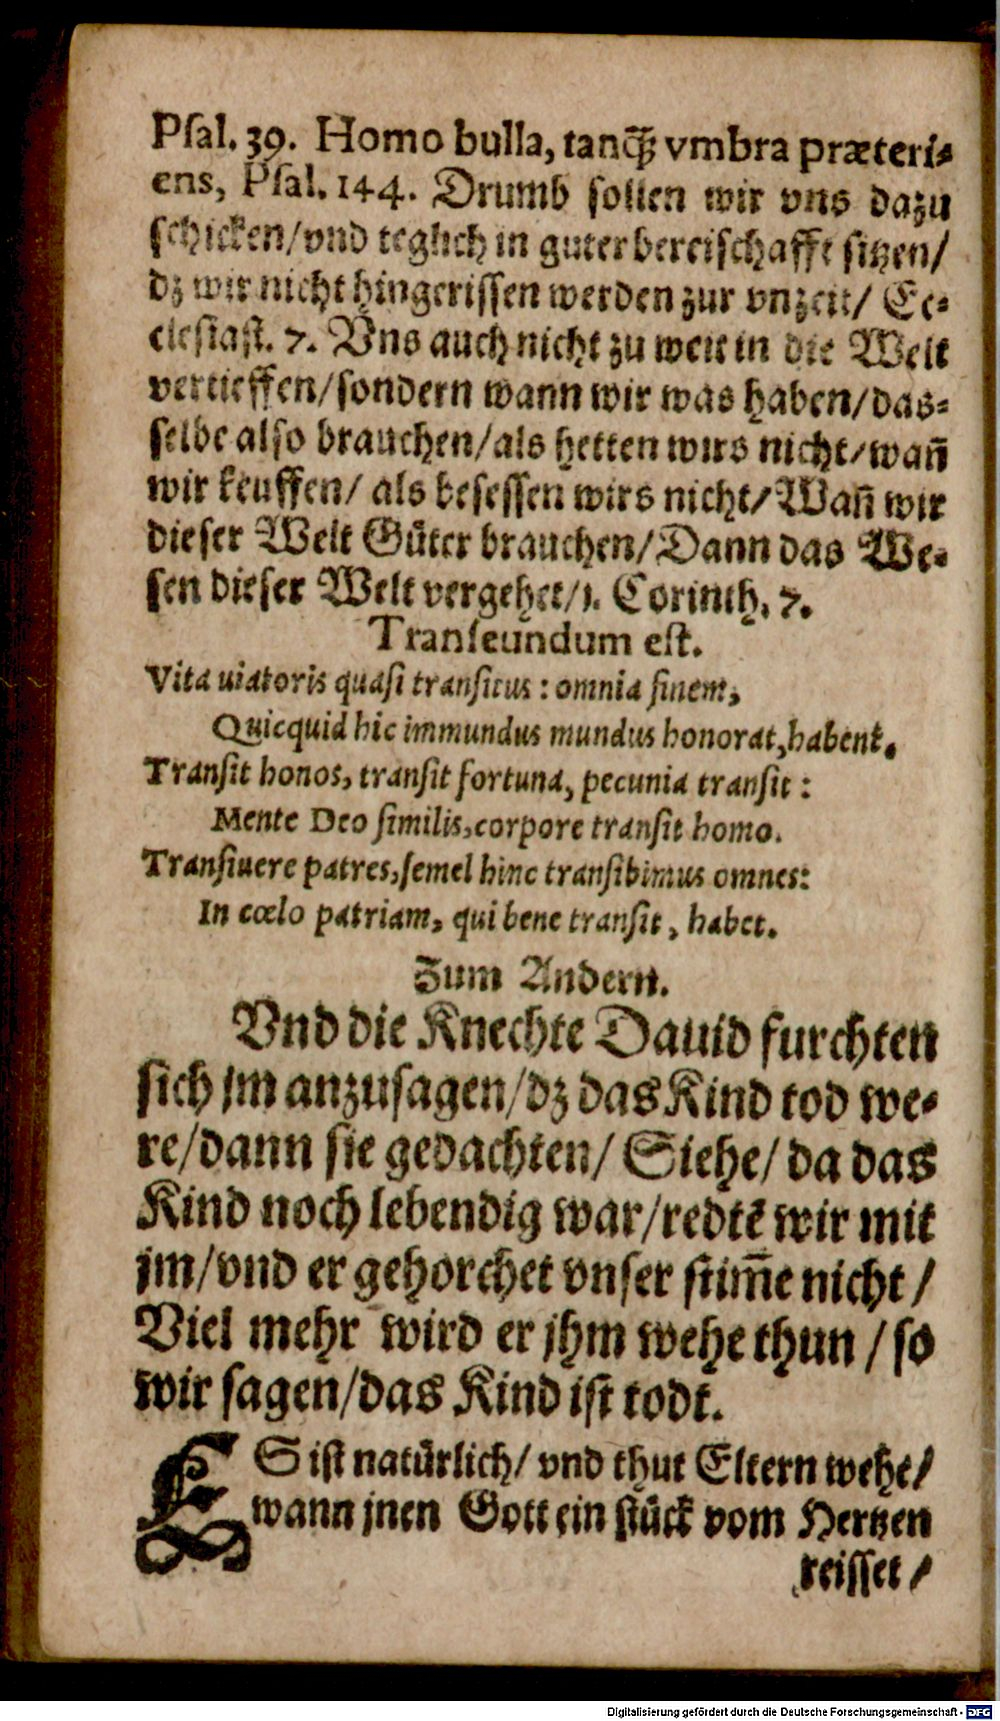 Psal. 39. Homo bulla, tanq̃ʒ vmbra præteri⸗
ens, Psal. 144. Drumb sollen wir vns dazu
schicken/vnd teglich in guter bereischafft sitzen/
dz wir nicht hingerissen werden zur vnzeit/ Ec⸗
clesiast. 7. Vns auch nicht zu weit in die Welt
vertieffen/sondern wann wir was haben/das⸗
selbe also brauchen/als hetten wirs nicht/wañ
wir keuffen/ als besessen wirs nicht/Wañ wir
dieser Welt Gůter brauchen/Dann das We⸗
sen dieser Welt vergehet/1. Corinth. 7.
Transeundum est.
Vita uiatoris quasi transitus: omnia finem,
Quicquid hic immundus mundus honorat, habent.
Transit honos, transit fortuna, pecunia transit:
Mente Deo similis, corpore transit homo.
Transiuere patres, semel hinc transibimus omnes:
In cœlo patriam, qui bene transit, habet.
Zum Andern.
Vnd die Knechte Dauid furchten
sich jm anzusagen/dz das Kind tod we⸗
re/dann sie gedachten/ Siehe/ da das
Kind noch lebendig war/redtẽ wir mit
jm/vnd er gehorchet vnser stim̃e nicht/
Viel mehr wird er jhm wehe thun/so
wir sagen/das Kind ist todt.
ES ist natůrlich/ vnd thut Eltern wehe/
wann jnen Gott ein stůck vom Hertzen
reisset/
Digitalisierung gefördert durch die Deutsche Forschungsgemeinschaft - DFG